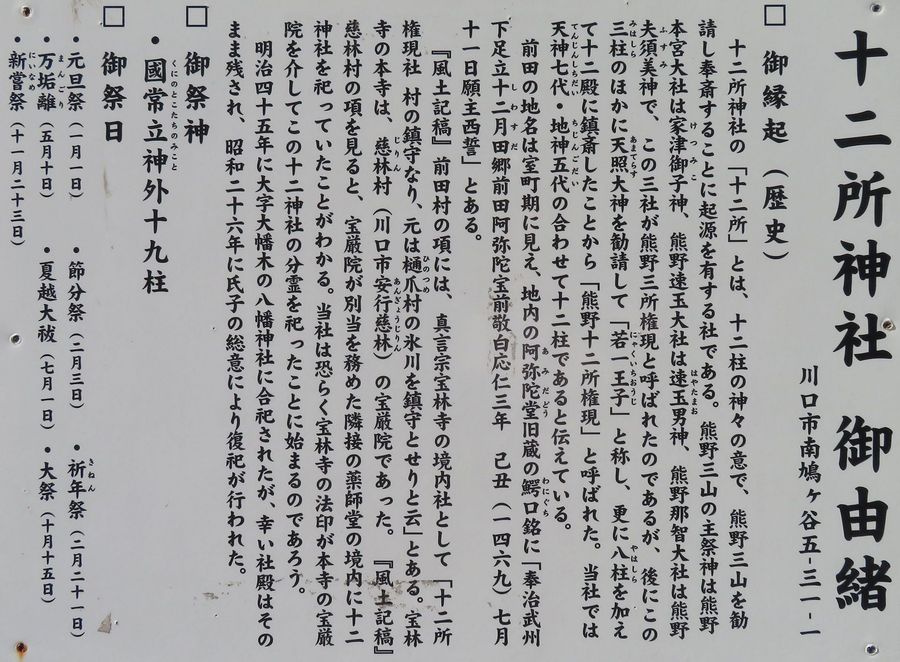 十二所神社 御由緒
川口市南鳩ヶ谷五-三一-一
□ 御縁起（歴史）
十二所神社の「十二所」とは、十二柱の神々の意で、熊野三山を勧
請し奉斎することに起源を有する社である。熊野三山の主祭神は熊野
本宮大社は家津御子神、熊野速玉大社は速玉男神、熊野那智大社は熊野
夫須美神で、この三社が熊野三所権現と呼ばれたのであるが、後にこの
三柱のほかに天照大神を勧請して「若一王子」と称し、更に八柱を加え
て十二殿に鎮斎したことから「熊野十二所権現」と呼ばれた。当社では
天神七代・地神五代の合わせて十二柱であると伝えている。
前田の地名は室町期に見え、地内の阿弥陀堂旧蔵の鰐口銘に「奉治武州
下足立十二月田郷前田阿弥陀宝前敬白応仁三年 己丑（一四六九）七月
十一日願主西誓」とある。
『風土記稿』前田村の項には、真言宗宝林寺の境内社として「十二所
権現社 村の鎮守なり、元は樋爪村の氷川を鎮守とせりと云」とある。宝林
寺の本寺は、慈林村（川口市安行慈林）の宝厳院であった。『風土記稿』
慈林村の項を見ると、宝厳院が別当を務めた隣接の薬師堂の境内に十二
神社を祀っていたことがわかる。当社は恐らく宝林寺の法印が本寺の宝厳
院を介してこの十二神社の分霊を祀ったことに始まるのであろう。
明治四十五年に大字大幡木の八幡神社に合祀されたが、幸い社殿はその
まま残され、昭和二十六年に氏子の総意により復祀が行われた。
□ 御祭神
・國常立神外十九柱
□ 御祭日
・元旦祭（一月一日） ・節分祭（二月三日） ・祈年祭（二月二十一日）
・万垢離（五月十日） ・夏越大祓（七月一日） ・大祭（十月十五日）
・新嘗祭（十一月二十三日）